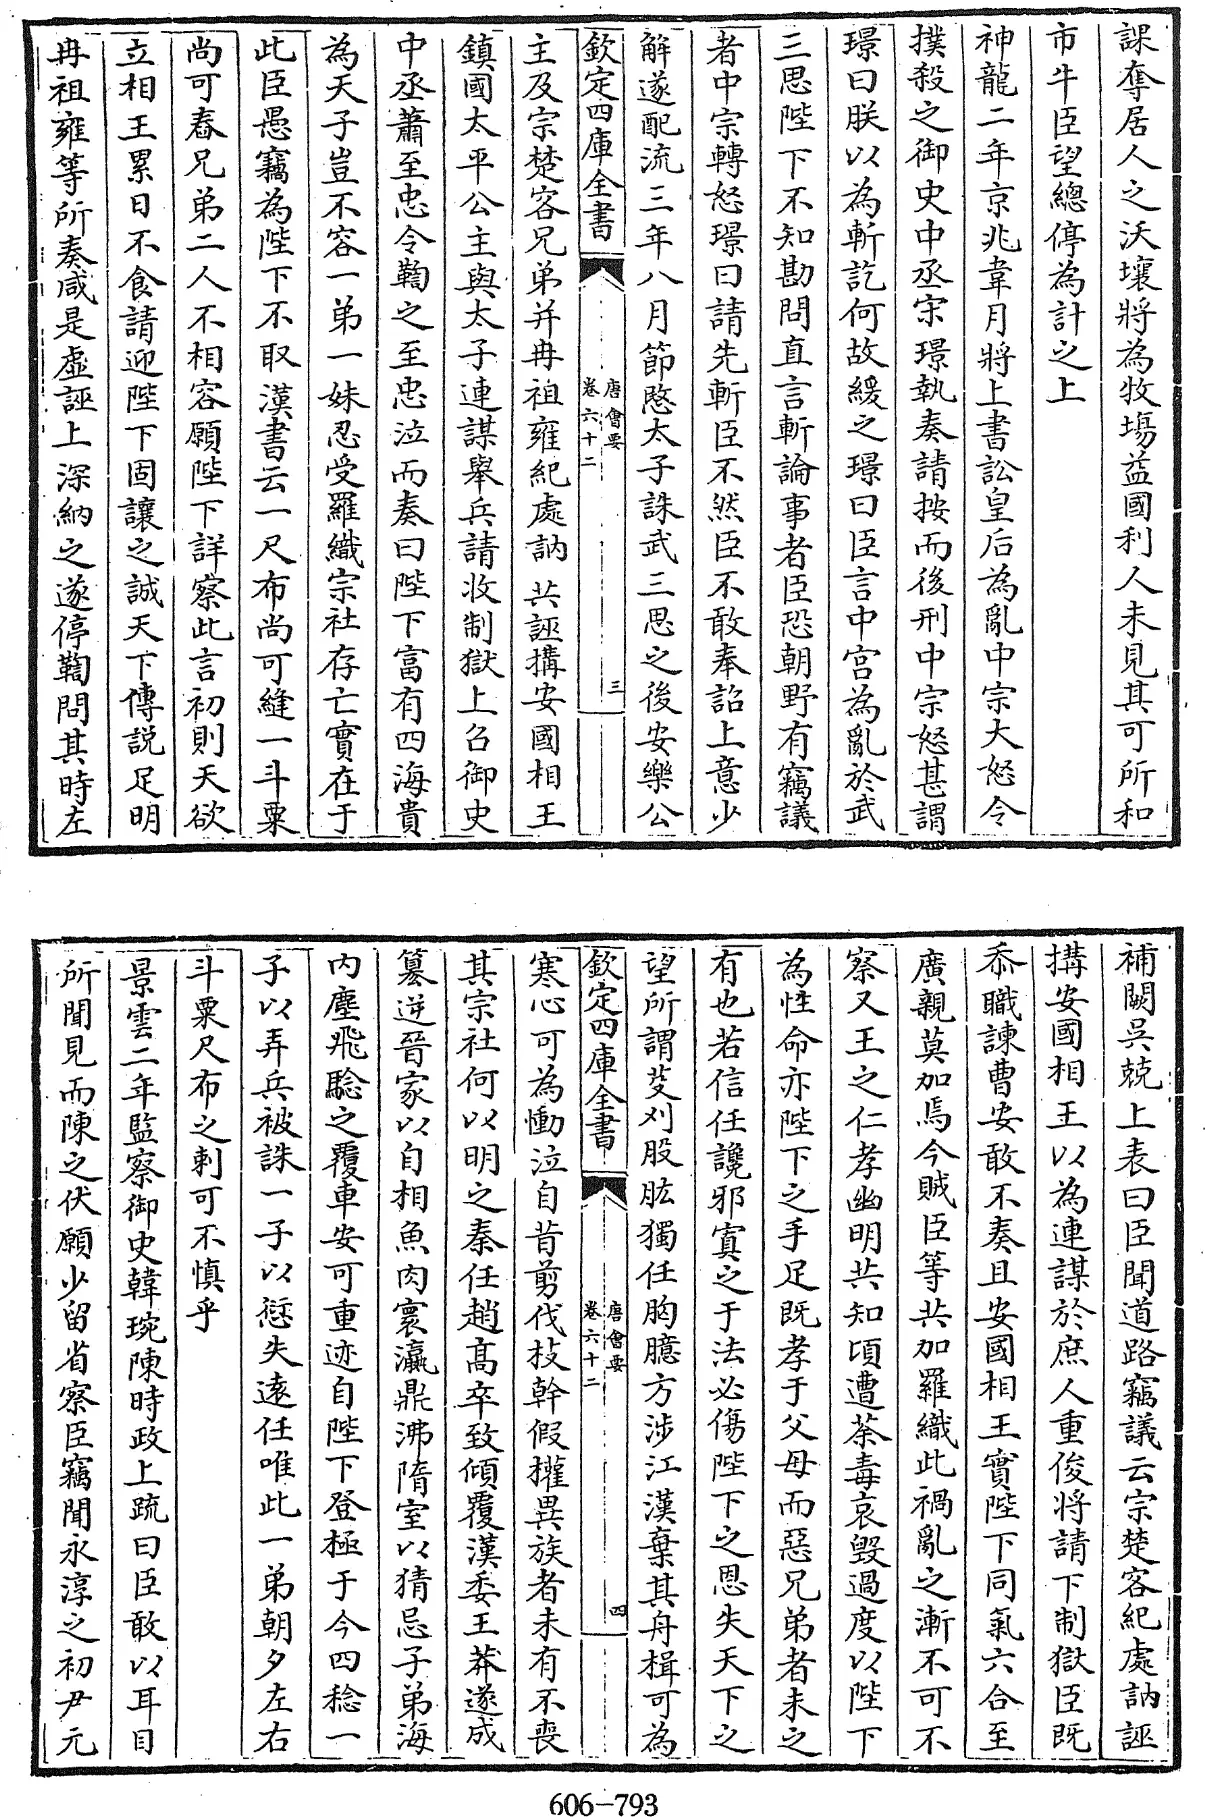 課奪居人之沃壤將為牧場益國利人未見其可所和
市牛臣望總停為計之上
神龍二年京兆韋月將上書訟皇后為亂中宗大怒令
撲殺之御史中丞宋璟執奏請按而後刑中宗怒甚謂
璟曰朕以為斬訖何故緩之璟曰臣言中宮為亂於武
三思陛下不知勘問直言斬論事者臣恐朝野有竊議
者中宗轉怒璟曰請先斬臣不然臣不敢奉詔上意少
解遂配流三年八月節愍太子誅武三思之後安樂公
欽定四庫全書
唐會要
卷六十二
三
主及宗楚客兄弟并冉祖雍紀處訥共誣搆安國相王
鎮國太平公主與太子連謀舉兵請收制獄上召御史
中丞蕭至忠令鞫之至忠泣而奏曰陛下富有四海貴
為天子豈不容一弟一妹忍受羅織宗社存亡實在于
此臣愚竊為陛下不取漢書云一尺布尚可縫一斗粟
尚可舂兄弟二人不相容願陛下詳察此言初則天欲
立相王累日不食請迎陛下固讓之誠天下傳說足明
冉祖雍等所奏咸是虛誣上深納之遂停鞫問其時左
補闕吳兢上表曰臣聞道路竊議云宗楚客紀處訥誣
搆安國相王以為連謀於庶人重俊將請下制獄臣既
忝職諫曹安敢不奏且安國相王實陛下同氣六合至
廣親莫加焉今賊臣等共加羅織此禍亂之漸不可不
察又王之仁孝幽明共知頃遭荼毒哀毀過度以陛下
為性命亦陛下之手足既孝于父母而惡兄弟者未之
有也若信任讒邪寘之于法必傷陛下之恩失天下之
望所謂芟刈股肱獨任胸臆方涉江漢棄其舟楫可為
欽定四庫全書
唐會要
卷六十二
四
寒心可為慟泣自昔剪伐枝幹假權異族者未有不喪
其宗社何以明之秦任趙高卒致傾覆漢委王莽遂成
簒逆晉家以自相魚肉寰瀛鼎沸隋室以猜忌子弟海
內塵飛驗之覆車安可重迹自陛下登極于今四稔一
子以弄兵被誅一子以愆失遠任唯此一弟朝夕左右
斗粟尺布之刺可不慎乎
景雲二年監察御史韓琬陳時政上疏曰臣敢以耳目
所聞見而陳之伏願少留省察臣竊聞永淳之初尹元
606-793